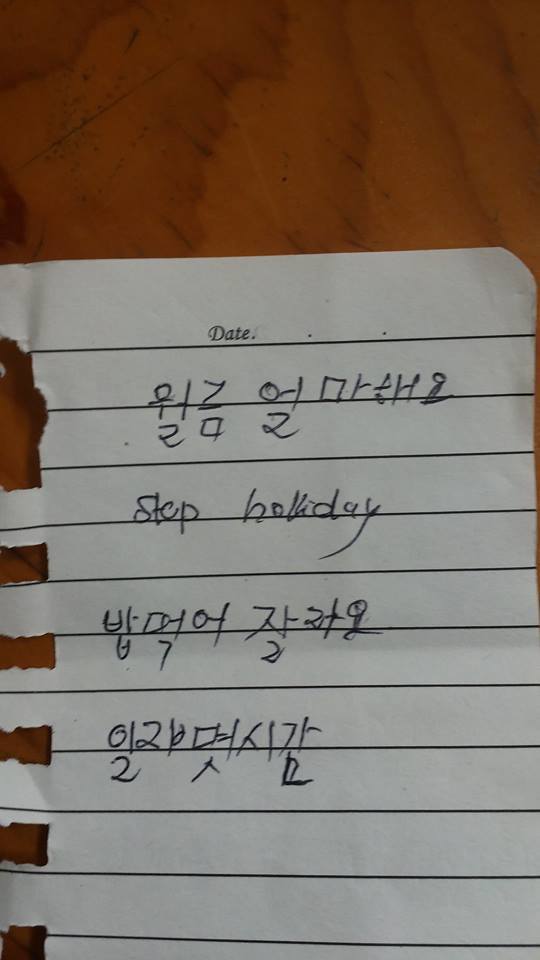 Date. . .
월금 얼마해요
Stop holliday
밥먹어 잘라요
일라몇시간